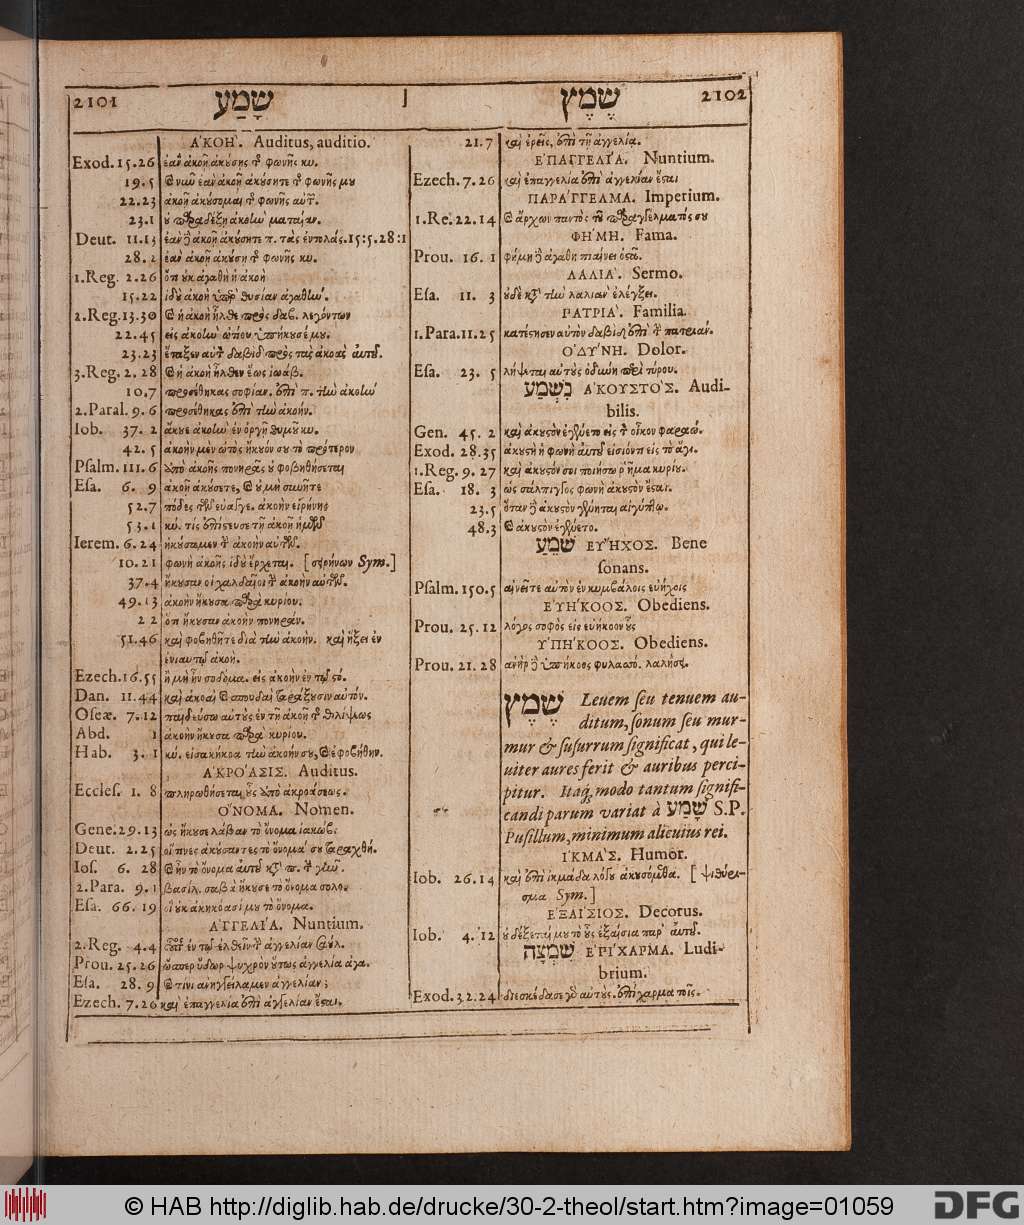 2101 שָׁמַע שֶׁמֶץ 2102
ἈΚΟΗ'. Auditus, auditio.
Exod. 15.26 ἐὰν ἀκοῇ ἀκούσῃς τῆς φωνῆς κυ.
19.5 ἐὰν ἀκοῇ ἀκούσητε τῆς φωνῆς μου
22.23 ἀκοῇ ἀκούσομαι τῆς φωνῆς αὐτῶν.
23.1 οὐ παραδέξῃ ἀκοὴν ματαίαν.
Deut. 11.13 ἐὰν ἀκοῇ ἀκούσητε π. τὰς ἐντολάς. 15:5.28:1
28.2 ἐὰν ἀκοῇ ἀκούσῃ τῆς φωνῆς κυ.
1.Reg. 2.26 ὅτι οὐκ ἀγαθὴ ἡ ἀκοὴ
15.22 ἰδοὺ ἀκοὴ ὑπὲρ θυσίαν ἀγαθὴν.
2.Reg. 13.30 καὶ ἡ ἀκοὴ ἦλθε πρὸς δαβ. λεγόντων
22.45 εἰς ἀκοὴν ὠτίου ὑπήκουσέ μου.
23.23 ἔταξεν αὐτὸν δαβὶδ πρὸς τὰς ἀκοὰς αὐτοῦ.
3.Reg. 2.28 καὶ ἡ ἀκοὴ ἦλθεν ἕως ἰωάβ.
10.7 προσέθηκας σοφίαν. ἐπὶ π. τὴν ἀκοὴν
2.Paral. 9.6 προσέθηκας ἐπὶ τὴν ἀκοήν.
Iob. 37.2 ἄκουε ἀκοὴν ἐν ὀργῇ θυμοῦ κυ.
42.5 ἀκοὴν μὲν ὠτὸς ἤκουόν σου τὸ πρότερον
Psalm. 111.6 ἀπὸ ἀκοῆς πονηρᾶς οὐ φοβηθήσεται
Esa. 6.9 ἀκοῇ ἀκούσετε, καὶ οὐ μὴ συνῆτε
52.7 πόδες εὐαγγ. ἀκοὴν εἰρήνης
53.1 κύ. τίς ἐπίστευσε τῇ ἀκοῇ ἡμῶν
Ierem. 6.24 ἠκούσαμεν τὴν ἀκοὴν αὐτῶν.
10.21 φωνὴ ἀκοῆς ἰδοὺ ἔρχεται. [ Sym.]
37.4 ἤκουσαν οἱ χαλδαῖοι τὴν ἀκοὴν αὐτῶν.
49.13 ἀκοὴν ἤκουσα παρὰ κυρίου.
22 ὅτι ἤκουσαν ἀκοὴν πονηράν.
51.46 καὶ φοβηθῆτε διὰ τὴν ἀκοήν. καὶ ἥξει ἐν
ἐνιαυτῷ ἀκοή.
Ezech. 16.55 ἦ μὴ ἦν σοδομα. εἰς ἀκοὴν ἐν τῷ σό.
Dan. 11.44 καὶ ἀκοαὶ καὶ σπουδαὶ ταράξουσιν αὐτόν.
Oseæ. 7.12 παιδεύσω αὐτοὺς ἐν τῇ ἀκοῇ τῆς θλίψεως
Abd. 1 ἀκοὴν ἤκουσα παρὰ κυρίου.
Hab. 3.1 κύ. εἰσακήκοα τὴν ἀκοήν σου, καὶ ἐφοβήθην.
ἈΚΡΟ'ΑΣΙΣ. Auditus.
Eccles. 1.8 πληρωθήσεται οὖς ἀπὸ ἀκροάσεως.
Ὄ'ΝΟΜΑ. Nomen.
Gene. 29.13 ὡς ἤκουσε λάβαν τὸ ὄνομα ἰακώβ.
Deut. 2.25 οἵτινες ἀκούσαντες τὸ ὄνομά σου ταραχθή.
Ios. 6.28 καὶ ἦν τὸ ὄνομα αὐτοῦ κατὰ π. τὴν γῆν.
2.Para. 9.1 βασίλ. σαβὰ ἤκουσε τὸ ὄνομα σολο.
Esa. 66.19 οἳ οὐκ ἀκηκόασί μου τὸ ὄνομα.
ἈΓΓΕΛΙ'Α. Nuntium.
2.Reg. 4.4 ἐν τῷ ἐλθεῖν τὴν ἀγγελίαν σαούλ.
Prou. 25.26 ὥσπερ ὕδωρ ψυχρὸν οὕτως ἀγγελία ἀγα.
Esa. 28.9 καὶ τίνι ἀνηγγείλαμεν ἀγγελίαν;
Ezech. 7.26 καὶ ἐπαγγελία ἐπὶ ἀγγελίαν ἔσται.
21.7 καὶ ἐρεῖς, ἐπὶ τῇ ἀγγελίᾳ.
ἘΠΑΓΓΕΛΙ'Α. Nuntium.
Ezech. 7.26 καὶ ἐπαγγελία ἐπὶ ἀγγελίαν ἔσται
ΠΑΡΑ'ΓΓΕΛΜΑ. Imperium.
1.Re. 22.14 καὶ ἄρχων παντὸς τοῦ παραγγέλματός σου
ΦΗ'ΜΗ. Fama.
Prou. 16.1 φήμη δὲ ἀγαθὴ πιαίνει ὀστᾶ.
ΛΑΛΙΑ'. Sermo.
Esa. 11.3 οὐδὲ κατὰ τὴν λαλιὰν ἐλέγξει.
ΡΑΤΡΙΑ'. Familia.
1.Para. 11.25 κατέστησεν αὐτὸν δαβὶδ ἐπὶ τὴν πατριάν.
Ὀ'ΔΥ'ΝΗ. Dolor.
Esa. 23.5 λήψεται αὐτοὺς ὀδύνη περὶ τύρου.
נִשְׁמַע ἈΚΟΥΣΤΟ'Σ. Audi-
bilis.
Gen. 45.2 καὶ ἀκουστὸν ἐγένετο εἰς τὸν οἶκον φαραώ.
Exod. 28.35 ἀκουστὴ ἡ φωνὴ αὐτοῦ εἰσιόντι εἰς τὸ ἅγι.
1.Reg. 9.27 καὶ ἀκουστόν σοι ποιήσω ῥῆμα κυρίου.
Esa. 18.3 ὡς σάλπιγγος φωνὴ ἀκουστὸν ἔσται.
23.5 ὅταν δὲ ἀκουστὸν γένηται αἰγύπτῳ.
48.3 καὶ ἀκουστὸν ἐγένετο.
שֵׁמַע ΕΥ'ΗΧΟΣ. Bene
sonans.
Psalm. 150.5 αἰνεῖτε αὐτὸν ἐν κυμβάλοις εὐήχοις
ΕΥ'Η'ΚΟΟΣ. Obediens.
Prou. 25.12 λόγος σοφὸς εἰς εὐήκοον οὖς
ΥΠΗ'ΚΟΟΣ. Obediens.
Prou. 21.28 ἀνὴρ δὲ ὑπήκοος φυλασσό. λαλήσει.
שֶׁמֶץ Leuem seu tenuem au-
ditum, sonum seu mur-
mur & susurrum significat, qui le-
uiter aures ferit & auribus perci-
pitur. Itaq; modo tantum signifi-
candi parum variat à שָׁמַע S.P.
Pusillum, minimum alicuius rei.
ἸΚΜΑ'Σ. Humor.
Iob. 26.14 καὶ ἐπὶ ἰκμάδα λόγου ἀκουσόμεθα. [ψιθύρι-
σμα Sym.]
ἘΞΑΙ'ΣΙΟΣ. Decorus.
Iob. 4.12 οὐ δέξεταί μου τὸ οὖς ἐξαίσια παρ' αὐτοῦ.
שִׁמְצָה ἘΠΙ'ΧΑΡΜΑ. Ludi-
brium.
Exod. 32.24 διεσκέδασε γὰρ αὐτοὺς. ἐπίχαρμα τοῖς.
© HAB http://diglib.hab.de/drucke/30-2-theol/start.htm?image=01059 DFG